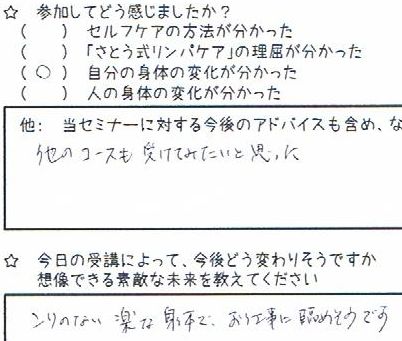 ☆ 参加してどう感じましたか？
(　　) セルフケアの方法が分かった
(　　) 「さとう式リンパケア」の理屈が分かった
(　○　) 自分の身体の変化が分かった
(　　) 人の身体の変化が分かった
他: 当セミナーに対する今後のアドバイスも含め、な
他のコースも受けてみたいと思った
☆ 今日の受講によって、今後どう変わりそうですか
想像できる素敵な未来を教えてください
コリのない 楽な身体で、お仕事に臨めそうです